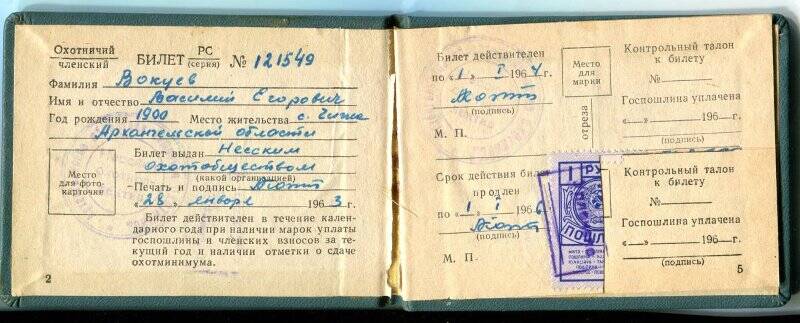 Охотничий
членский
БИЛЕТ РС (серия) № 121549
Фамилия Вокуев
Имя и отчество Василий Егорович
Год рождения 1900 Место жительства с. Чижа
Архангельской области
Место
для фото-
карточки
Билет выдан Несским
охотобществом
(какой организацией)
Печать и подпись
«28» января 1963 г.
Билет действителен в течение кален-
дарного года при наличии марок уплаты
госпошлины и членских взносов за те-
кущий год и наличии отметки о сдаче
охотминимума.
2
Билет действителен
по «1» I 1964 г.
(подпись)
М. П.
Место
для
марки
отреза
Контрольный талон
к билету
№
Госпошлина уплачена
«—» 196 г.
(подпись)
Срок действия билета
продлен
по «1» I 1966
(подпись)
М. П.
1 РУ
ПОШЛ
Контрольный талон
к билету
№
Госпошлина уплачена
«—» 196 г.
(подпись)
5